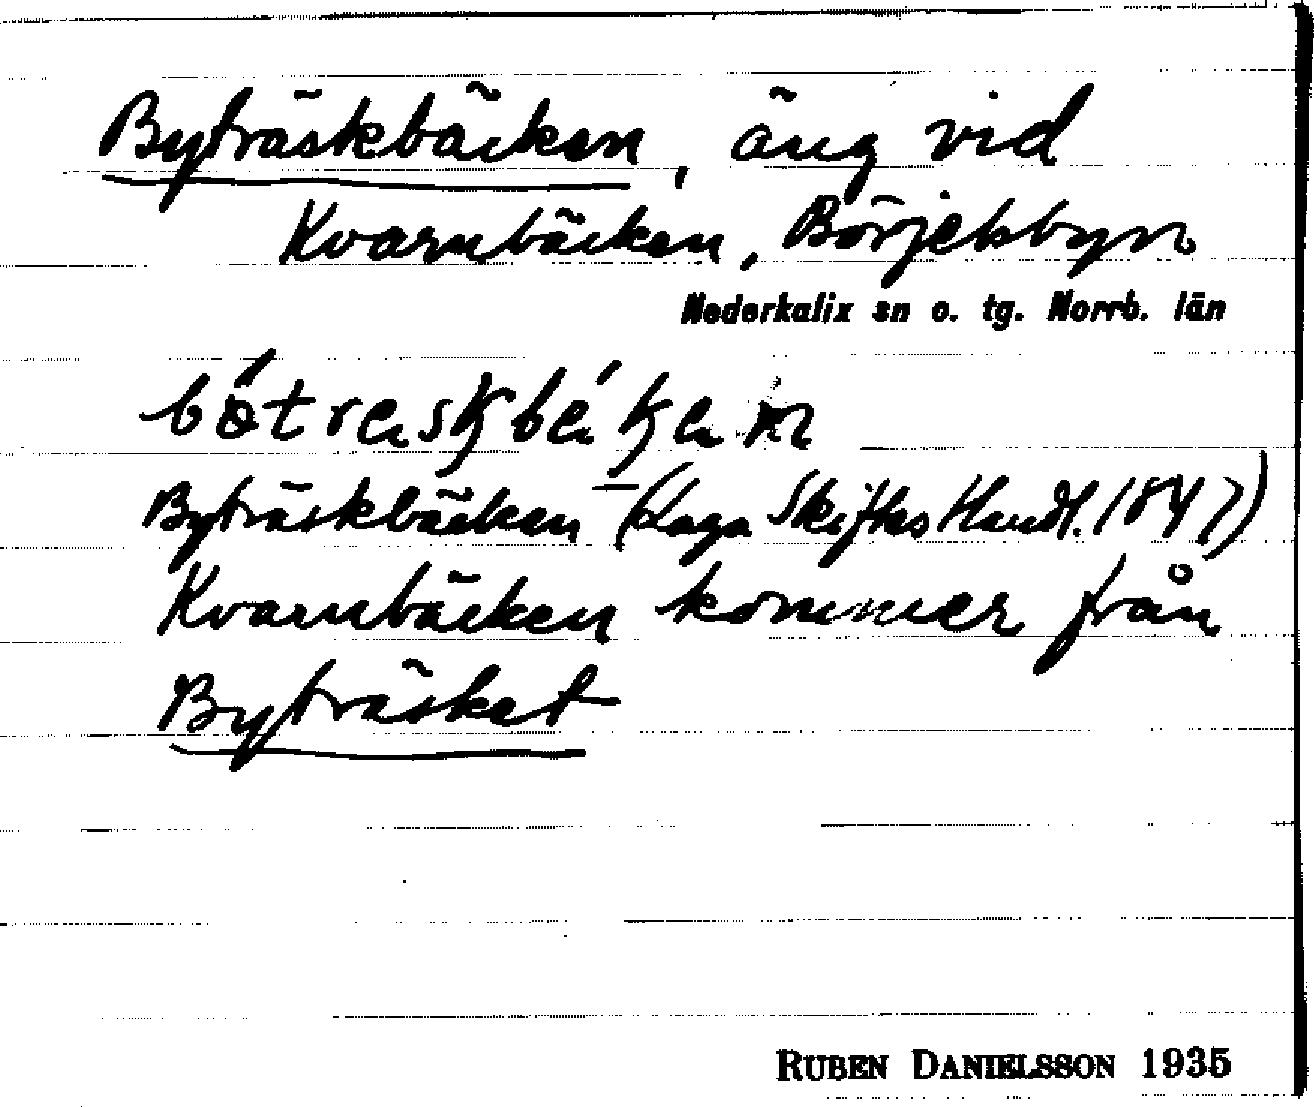 Byträskbäcken, äng vid
Kvarnbäcken, Börjelsbyn
Nederkalix sn o. tg. Norrb. län
Byträskbäcken (Laga Skiftes Handl. 1847)
Kvarnbäcken kommer från
Byträsket
RUBEN DANIELSSON 1935